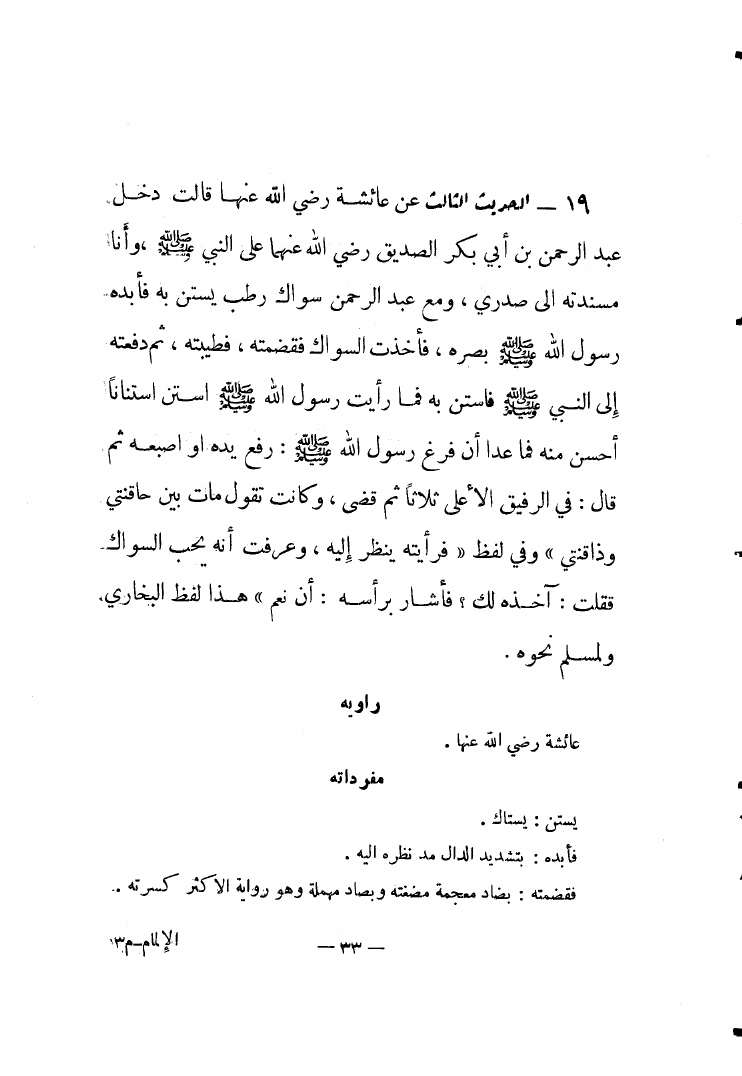 ١٩ ــ الحديث الثالث عن عائشة رضي الله عنها قالت دخل
عبد الرحمن بن أبي بكر الصديق رضي الله عنهما على النبي ﷺ ،وأنا
مسندته الى صدري ، ومع عبد الرحمن سواك رطب يستن به فأبده
رسول الله ﷺ بصره ، فأخذت السواك فقضمته ، فطيبته ، ثم دفعته
إلى النبي ﷺ فاستن به فما رأيت رسول الله ﷺ استن استناناً
أحسن منه فما عدا أن فرغ رسول الله ﷺ : رفع يده او اصبعه ثم
قال : في الرفيق الأعلى ثلاثاً ثم قضى ، وكانت تقول مات بين حاقنتي
وذاقنتي » وفي لفظ « فرأيته ينظر إليه ، وعرفت أنه يحب السواك
فقلت : آخذه لك ؟ فأشار برأسه : أن نعم » هذا لفظ البخاري.
ولمسلم نحوه .
راويه
عائشة رضي الله عنها .
مفرداته
يستن : يستاك .
فأبده : بتشديد الدال مد نظره اليه .
فقضمته : بضاد معجمة مضغته وبصاد مهملة وهو رواية الأكثر كسرته .
— ٣٣ —
الإلمام-م٣